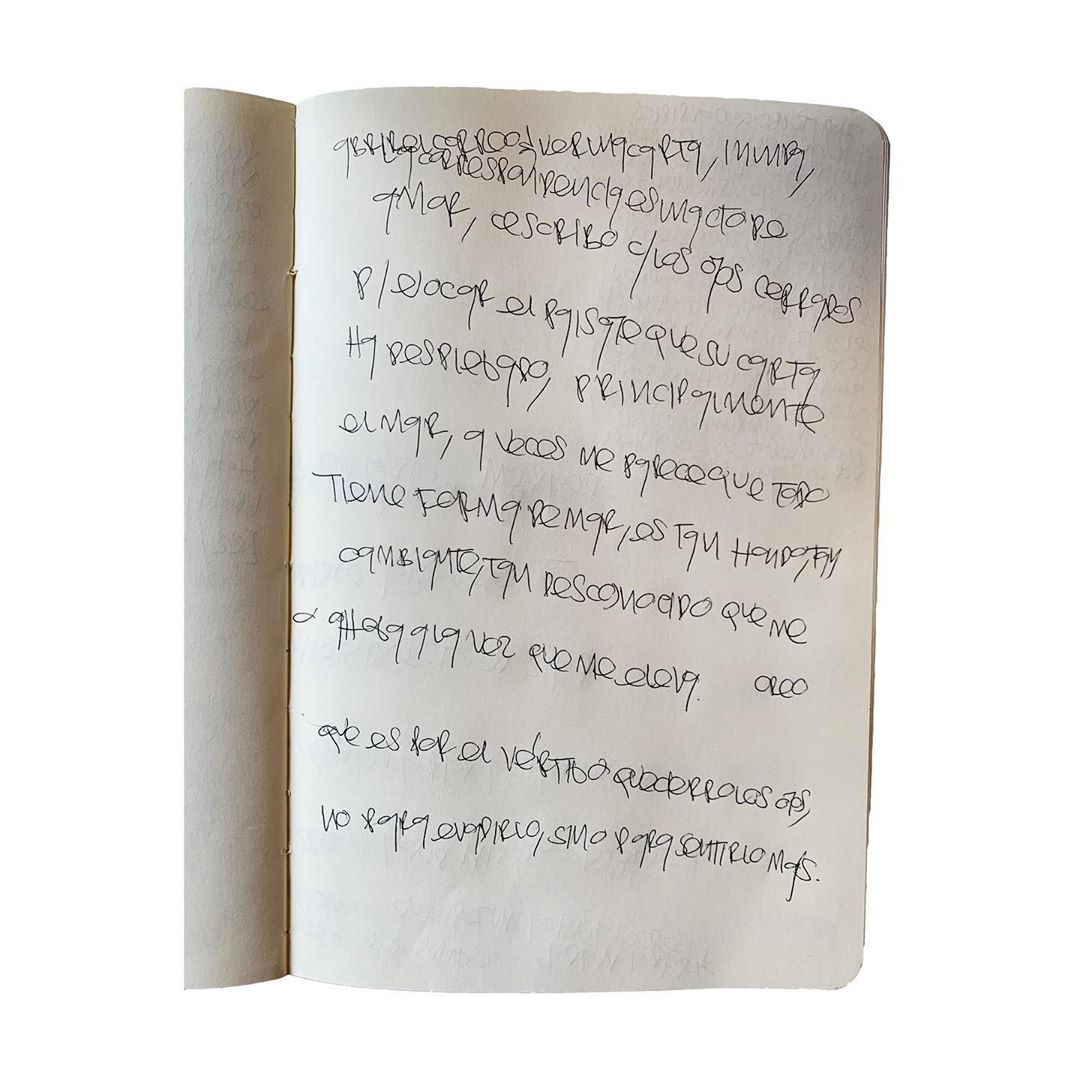 abrir el correo & ver una carta, inmig,
la correspondencia es un acto de
amar, escribo c/los ojos cerrados
p/evocar el paisaje que su carta
ha desplegado, principalmente
el mar, a veces me parece que todo
tiene forma de mar, es tan hondo, tan
cambiante, tan desconocido que me
ahoga a la vez que me eleva. creo
que es por el vértigo que cierro los ojos,
no para evadirlo, sino para sentirlo más.